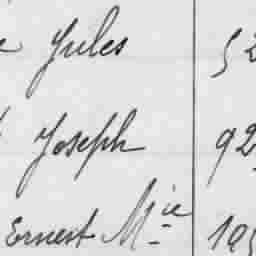 Jules 52
Joseph 92
Ernest Mie 19